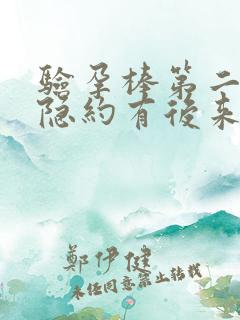 验孕棒第二
隐约有後来
鄭伊健
未经同意禁止转载